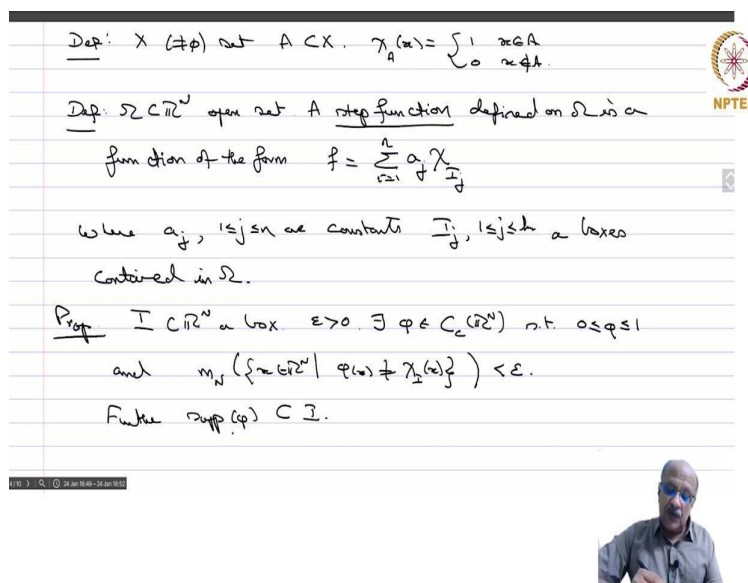 Def: X (≠φ) set A ⊂ X. χ_A(x) = { 1 x∈A
0 x∉A.
NPTEL
Def: Ω ⊂ ℝ^N open set. A step function defined on Ω is a
function of the form f = Σ_{i=1}^{n} a_j χ_{I_j}
where a_j, 1≤j≤n are constants I_j, 1≤j≤n a boxes
contained in Ω.
Prop. I ⊂ ℝ^N a box. ε>0. ∃ φ ∈ C_c(ℝ^N) s.t. 0≤φ≤1
and m_N({x∈ℝ^N | φ(x) ≠ χ_I(x)}) < ε.
Further supp(φ) ⊂ I.
4/10 24 Jan 18:49 - 24 Jan 18:52